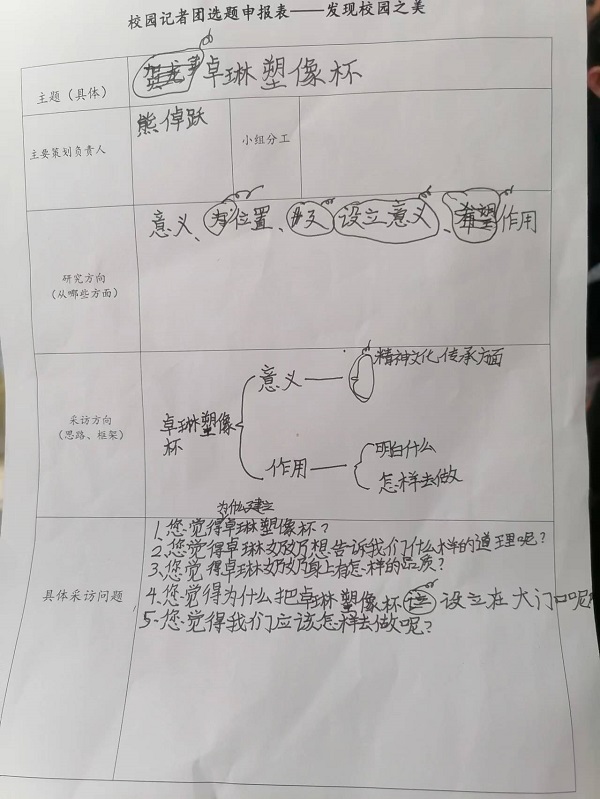 校园记者团选题申报表——发现校园之美
主题（具体）
卓琳塑像杯
主要策划负责人
熊倬跃
小组分工
研究方向
（从哪些方面）
意义、位置、及设立意义、希望作用
采访方向
（思路、框架）
卓琳塑像
杯
意义——精神文化传承方面
作用——明白什么
怎样去做
具体采访问题
为什么建立
1.您觉得卓琳塑像杯？
2.您觉得卓琳奶奶想告诉我们什么样的道理呢？
3.您觉得卓琳奶奶身上有怎样的品质？
4.您觉得为什么把卓琳塑像杯这设立在大门口呢？
5.您觉得我们应该怎样去做呢？